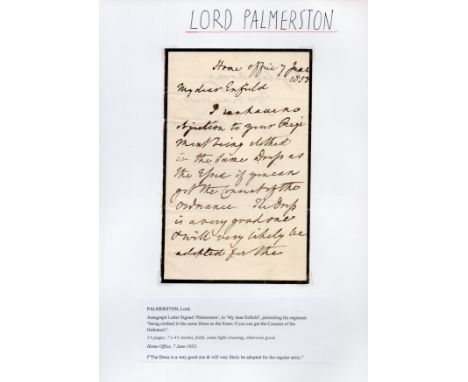 LORD PALMERSTON
Home office 7 June
1853
My dear Enfield
I can have no
objection to your Regi
ment being clothed
in the same Dress as
the Essex if you can
get the Consent of the
Ordnance The Dress
is a very good one
& will very likely be
adopted for the
PALMERSTON, Lord.
Autograph Letter Signed 'Palmerston', to 'My dear Enfield', permitting his regiment
"being clothed in the same Dress as the Essex if you can get the Consent of the
Ordnance".
1¼ pages, 7 x 4½ inches, folds, some light creasing, otherwise good.
Home Office, 7 June 1853.
f"The Dress is a very good one & will very likely be adopted for the regular army."